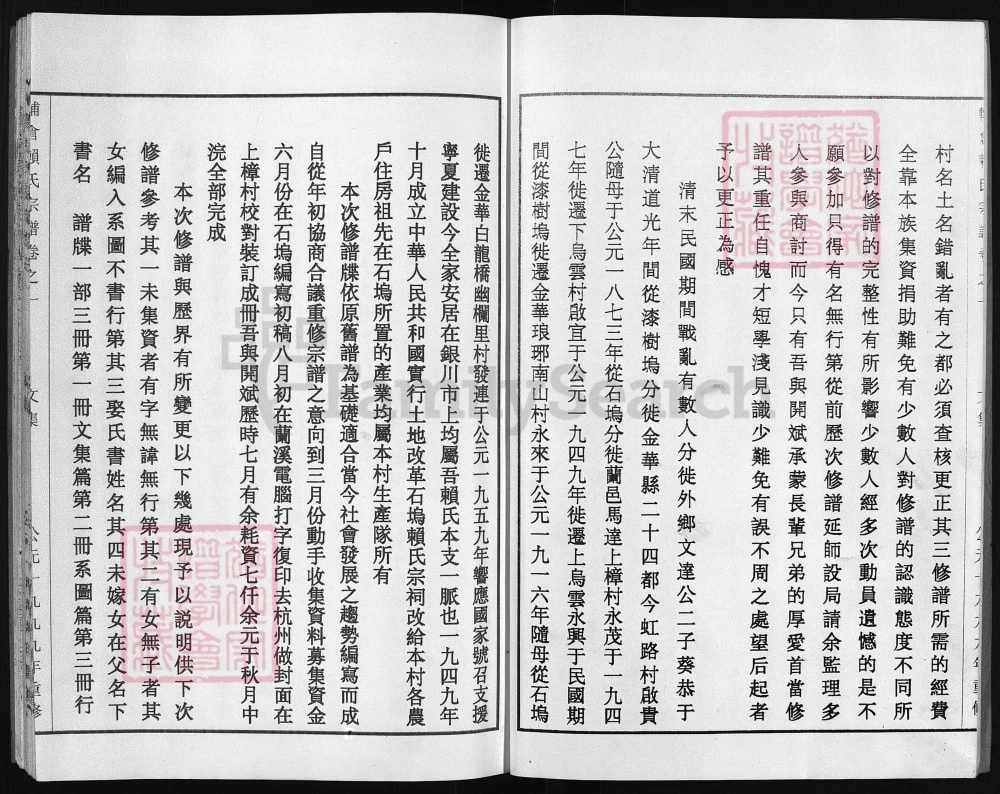 村名土名錯亂者有之都必須查核更正其三修譜所需的經費
全靠本族集資捐助難免有少數人對修譜的認識態度不同所
以對修譜的完整性有所影響少數人經多次動員遺憾的是不
願參加只得有名無行第從前歷次修譜延師設局請余監理多
人參與商討而今只有吾與開斌承蒙長輩兄弟的厚愛首當修
譜其重任自愧才短學淺見識少難免有誤不周之處望后起者
予以更正為感
清末民國期間戰亂有數人分徙外鄉文達公二子葵恭于
大清道光年間從漆樹塢分徙金華縣二十四都今虹路村啟貴
公隨母于公元一八七三年從石塢分徙蘭邑馬達上樟村永茂于一九四
七年徙遷下烏雲村啟宜于公元一九四九年徙遷上烏雲永興于民國期
間從漆樹塢徙遷金華琅琊南山村永來于公元一九一六年隨母從石塢
徙遷金華白龍橋幽欄里村發連于公元一九五九年響應國家號召支援
寧夏建設今全家安居在銀川市上均屬吾賴氏本支一脈也一九四九年
十月成立中華人民共和國實行土地改革石塢賴氏宗祠改給本村各農
戶住房祖先在石塢所置的產業均屬本村生產隊所有
本次修譜牒依原舊譜為基礎適合當今社會發展之趨勢編寫而成
自從年初協商合議重修宗譜之意向到三月份動手收集資料募集資金
六月份在石塢編寫初稿八月初在蘭溪電腦打字復印去杭州做封面在
上樟村校對裝訂成冊吾與開斌歷時七月有余耗資七仟余元于秋月中
浣全部完成
本次修譜與歷界有所變更以下幾處現予以説明供下次
修譜參考其一未集資者有字無諱無行第其二有女無子者其
女編入系圖不書行第其三娶氏書姓名其四未嫁女在父名下
書名 譜牒一部三冊第一冊文集篇第二冊系圖篇第三冊行
賴氏宗譜卷之一 文集 公元一九九九年重修
FamilySearch